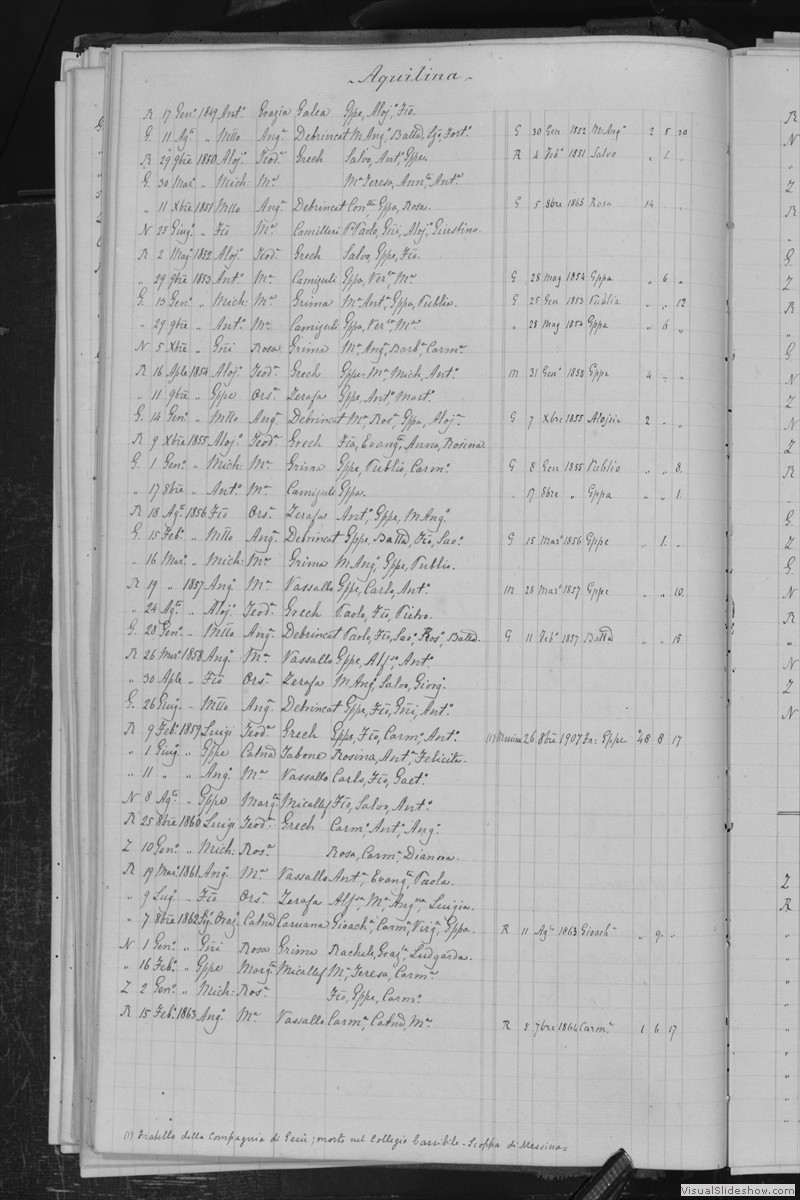 Aquilina
R 17 Gen.º 1849 Ant.º Grazia Galea Gppe, Aloj.º, Fio.
G. 11 Ag.º „ Mtto Ang.ª Debrincat M. Ang.ª, Batta, Fort.º G 30 Gen 1852 M. Ang.ª 2 5 20
R 29 9bre 1850 Aloj.º Teod.ª Grech Salvo, Ant.º, Gppe. R 4 Feb.º 1851 Salvo „ 1. „
G. 30 Mar.º „ Mich: M.ª M.ª Teresa, Ann.ª, Ant.ª
„ 11 Xbre 1851 Mtto Ang.ª Debrincat Con.tta, Gppa, Rosa. G 5 8bre 1865 Rosa 14 „ „
N 25 Giug.º „ Fio M.ª Camilleri Paolo, Gio, Aloj.º, Giustino.
R 2 Mag.º 1852 Aloj.º Teod.ª Grech Salvo, Gppe, Fio.
„ 29 9bre 1853 Ant.º M.ª Camizuli Gppa, Ver.ca, M.ª G 28 Mag 1854 Gppa „ 6 „
G. 13 Gen.º „ Mich: M.ª Grima M.ª Ant.ª, Gppa, Publia. G 25 Gen 1853 Publia „ „ 12
„ 29 9bre „ Ant.º M.ª Camizuli Gppa, Ver.ca, M.ª „ 28 Mag 1854 Gppa „ 6 „
N 5 Xbre „ Gio Rosa Grima M.ª Ang.ª, Barb.ª, Carm.ª
R 16 Aple 1854 Aloj.º Teod.ª Grech Gppe M.ª Mich, Ant.º M 31 Gen.º 1858 Gppe 4 „ „
„ 11 9bre „ Gppe Ors.ª Zerafa Gppe, Ant.º, Mart.º
G. 14 Gen.º „ Mtto Ang.ª Debrincat M.ª Ros.ª, Gppa, Aloj.ª G 7 Xbre 1855 Alojsia 2 „ „
R 9 Xbre 1855 Aloj.º Teod.ª Grech Fia, Evang.ª, Anna, Rosina
G. 1 Gen.º „ Mich: M.ª Grima Gppe, Publio, Carm.º G 8 Gen 1855 Publio „ „ 8.
„ 17 8bre „ Ant.º M.ª Camizuli Gppa. „ 17 8bre „ Gppa „ „ 1.
R 18 Ag.º 1856 Fio Ors.ª Zerafa Ant.º, Gppe, M. Ang.º
G. 15 Feb.º „ Mtto Ang.ª Debrincat Gppe, Batta, Fio, Sav.º G 15 Mar.º 1856 Gppe „ 1. „
„ 16 Mar.º „ Mich: M.ª Grima M. Ang.º, Gppe, Publio.
R 19 „ 1857 Ang.º M.ª Vassallo Gppe, Carlo, Ant.º M 28 Mar.º 1857 Gppe „ „ 10.
„ 24 Ag.º „ Aloj.º Teod.ª Grech Paolo, Fio, Pietro.
G. 28 Gen.º „ Mtto Ang.ª Debrincat Paolo, Fio, Sav.º, Ros.º, Batta. G 11 Feb.º 1857 Batta „ „ 15
R 26 Mar.º 1858 Ang.º M.ª Vassallo Gppe, Alf.so, Ant.º
„ 30 Aple „ Fio Ors.ª Zerafa M. Ang.º, Salvo, Giorg.º
G. 26 Giug.º „ Mtto Ang.ª Debrincat Gppe, Fio, Gio, Ant.º
R 9 Feb.º 1859 Luigi Teod.ª Grech Gppe, Fio, Carm.º, Ant.º (1) Messina 26 8bre 1907 Fr: Gppe 48 8 17
„ 1 Giug.º „ Gppe Catna Tabone Rosina, Ant.ª, Felicita.
„ 11 „ „ Ang.º M.ª Vassallo Carlo, Fio, Gaet.º
N 8 Ag.º „ Gppe Marg.ª Micallef Fio, Salvo, Ant.º
R 25 8bre 1860 Luigi Teod.ª Grech Carm.º, Ant.º, Ang.º
Z 10 Gen.º „ Mich: Ros.ª Rosa, Carm.ª, Dianora.
R 19 Mar.º 1861 Ang.º M.ª Vassallo Ant.ª, Evang.ª, Paola.
„ 9 Lug.º „ Fio Ors.ª Zerafa Alf.sa, M.ª Ang.ª, Luigia.
„ 7 8bre 1862 Oraz.º Catna Caruana Gioach.ª, Carm.ª, Virg.ª, Gppa. R 11 Ag.º 1863 Gioach.ª „ 9. „
N 1 Gen.º „ Gio Rosa Grima Rachele, Graz.la, Ludgarda.
„ 16 Feb.º „ Gppe Marg.ª Micallef M.ª, Teresa, Carm.ª
Z 2 Gen.º „ Mich: Ros.ª Fio, Gppe, Carm.º
R 15 Feb.º 1863 Ang.º M.ª Vassallo Carm.ª, Catna, M.ª R 5 7bre 1864 Carm.ª 1 6 17
(1) Fratello della Compagnia di Gesù; morto nel Collegio di Messina
VisualSlideshow.com